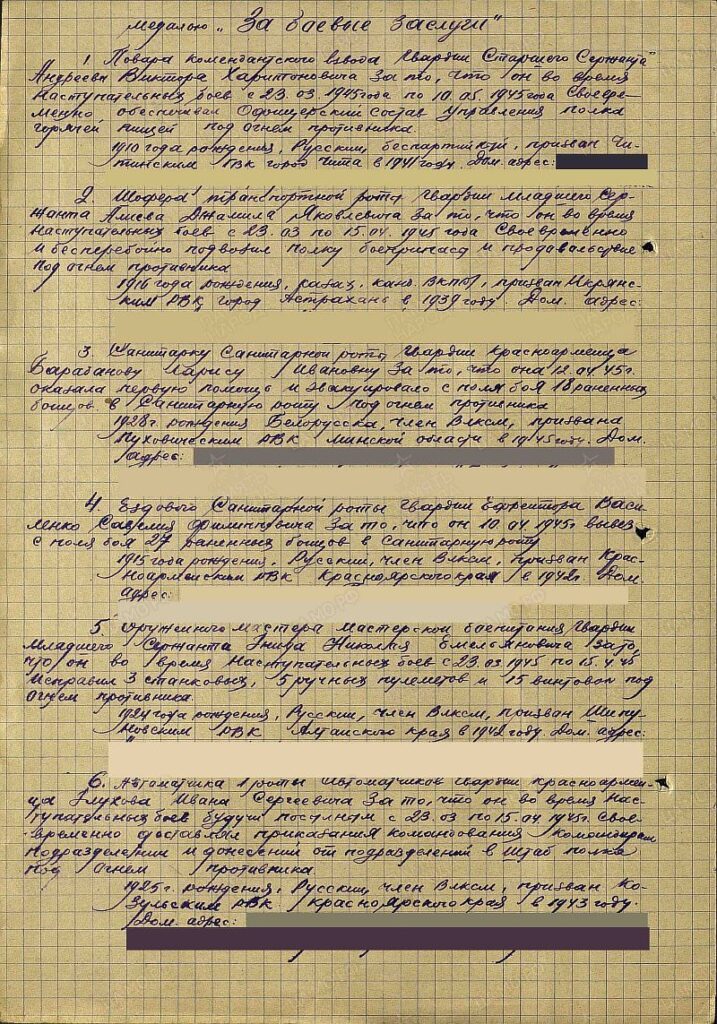 медалью „За боевые заслуги"
1. Повара комендантского взвода Гвардии Старшего Сержанта
Андреева Виктора Харитоновича за то, что он во время
наступательных боев с 23.03.1945 года по 10.05.1945 года Своевре-
менно обеспечивал Офицерский состав Управления полка
горячей пищей под огнем противника.
1910 года рождения, Русский, беспартийный, призван Чи-
тинским РВК город Чита в 1941 году. Дом. адрес:
2. Шофера транспортной роты гвардии младшего Сер-
жанта Джамила Яковлевича за то, что он во время
наступательных боев с 23.03 по 15.04.1945 года Своевременно
и бесперебойно подвозил полку боеприпасы и продовольствие
под огнем противника
1916 года рождения, казах, канд. ВКП(б), призван Икрянс-
ким РВК город Астрахань в 1939 году. Дом. адрес:
3. Санитарку Санитарной роты гвардии красноармейца
Барабанову Ларису Ивановну за то, что она 12.04.45г.
оказала первую помощь и эвакуировало с поля боя 18 раненных
бойцов в Санитарную роту под огнем противника
1928г. рождения Белорусска, член Влксм, призвана
Пуховическим РВК Минской области в 1945 году. Дом.
адрес:
4. Ездового Санитарной роты гвардии Ефрейтора Васи-
ленко Савелия Филипповича за то, что он 10.04.1945г вывез
с поля боя 27 раненных бойцов в Санитарную роту
1915 года рождения, Русский, член Влксм, призван Крас-
ноармейским РВК Красноярского края в 1942г. Дом.
адрес:
5. Оружейного мастера Мастерской боепитания Гвардии
Младшего Сержанта Николая Емельяновича за то,
что он во время наступательных боев с 23.03.1945 по 15.4.45
исправил 3 станковых, 5 ручных пулеметов и 15 винтовок под
огнем противника.
1924 года рождения, Русский, член Влксм, призван Шипу-
новским РВК Алтайского края в 1942 году. Дом. адрес:
6. Автоматчика роты автоматчиков гвардии красноармей-
ца Глухова Ивана Сергеевича за то, что он во время нас-
тупательных боев будучи посыльным с 23.03 по 15.04.1945г. Свое-
временно доставлял приказания командования командирам
подразделений и донесений от подразделений в Штаб полка
под огнем противника
1925г. рождения, Русский, член Влксм, призван Ко-
зульским РВК Красноярского края в 1943 году.
Дом. адрес: